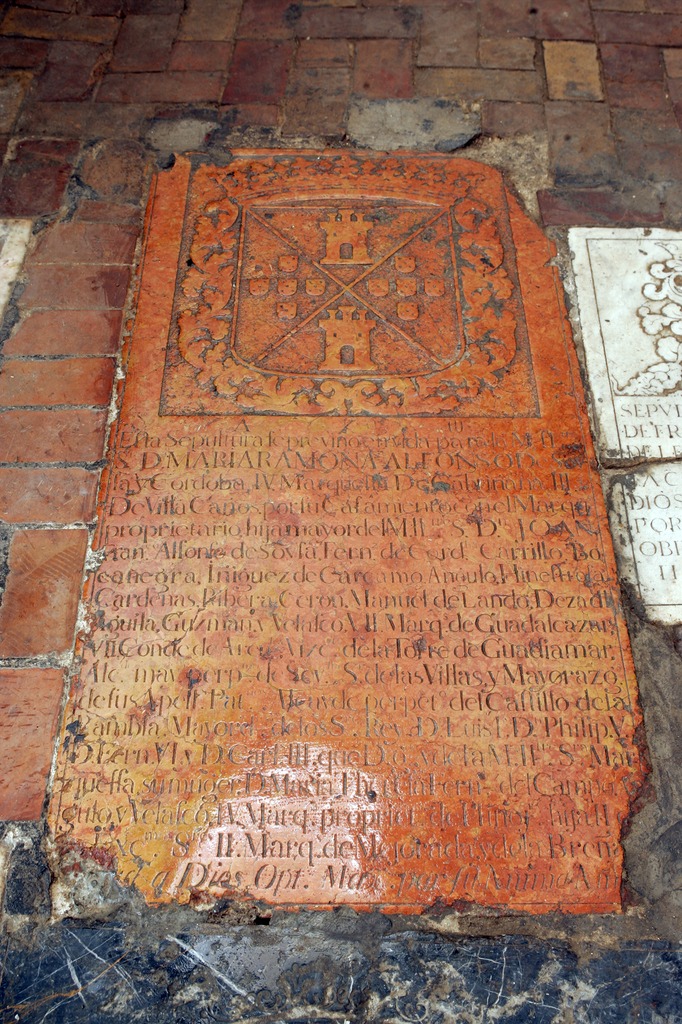 Esta Sepultura se previno en vida para la M. Il.
S. D. MARIA RAMONA ALFONSO DE
sa y Cordoba, IV. Marquesa De Gabriñana, III.
De Villa Caños, por su Casamiento con el Marqs.
proprietario, hija mayor del M. Il. S. Dn. JOAN
Alfonso de Sousa Fern. de Cord. Carrillo, Bo
canegra, Iñiguez de Carcamo, Angulo, Hinestrosa
Cardenas, Ribera, Ceron, Manuel de Lando, Deza d
Aguila, Guzman, y Velasco, VII. Marq. de Guadalcazar,
VII Conde de Are de la Torre de Guadiamar,
Alc. may. perp. de Sev. S. de las Villas, y Mayorazg
de sus Apell. Pat. y de perpet. del Castillo de la
Rambla, Mayord. de los S. Rey. D. Luis I. D. Philip. V.
D. Fern. VI. y D. Carl. III. que D. g. y de la M. Il. S. Mar
quessa, su muger, D. Maria Fern. del Campo
gulo, y Velasco, IV. Marq. propriet. de hija
S. II. Marq. de Mejorada, y de la Breña
a Dies Opt. Max. por su Anima Am
SEPVL
DE FR
DIOS
POR
OBI
II